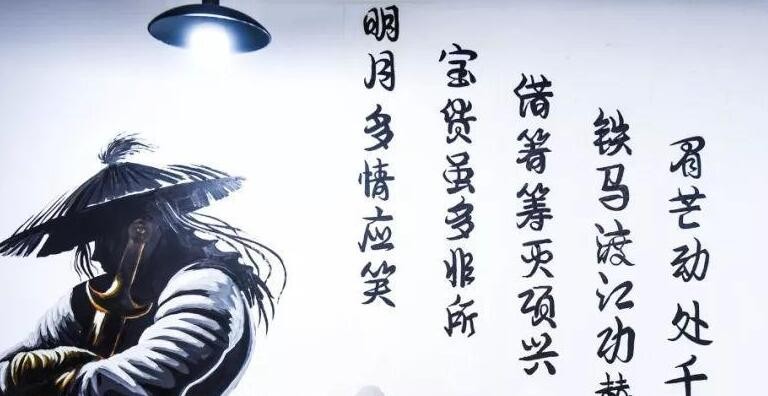 眉芒动处千
铁马渡江功
借箸筹灭项兴
宝货虽多非所
明月多情应笑